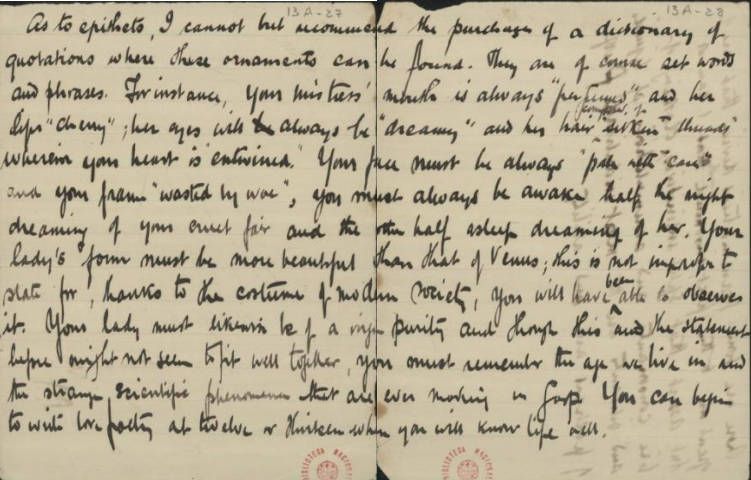 13A-27
13A-28
As to epithets, I cannot but recommend the purchase of a dictionary of
quotations where these ornaments can be found. They are of course set words
and phrases. For instance, your mistress' mouth is always "perfumed" and her
lips "cherry"; her eyes will always be "dreamy" and her hair "composed of silken threads
wherein your heart is entwined." Your face must be always "pale with care"
and your frame "wasted by woe", you must always be awake half the night
dreaming of your cruel fair and the other half asleep dreaming of her. Your
lady's form must be more beautiful than that of Venus; this is not improper to
state for, thanks to the costume of modern society, you will have been able to observe
it. Your lady must likewise be of a virgin purity and though this and the statement
before might not seem to fit well together, you must remember the age we live in and
the strange scientific phenomena that are ever making us gasp. You can begin
to write love poetry at twelve or thirteen when you will know life well.
BIBLIOTECA NACIONAL
BIBLIOTECA NACIONAL